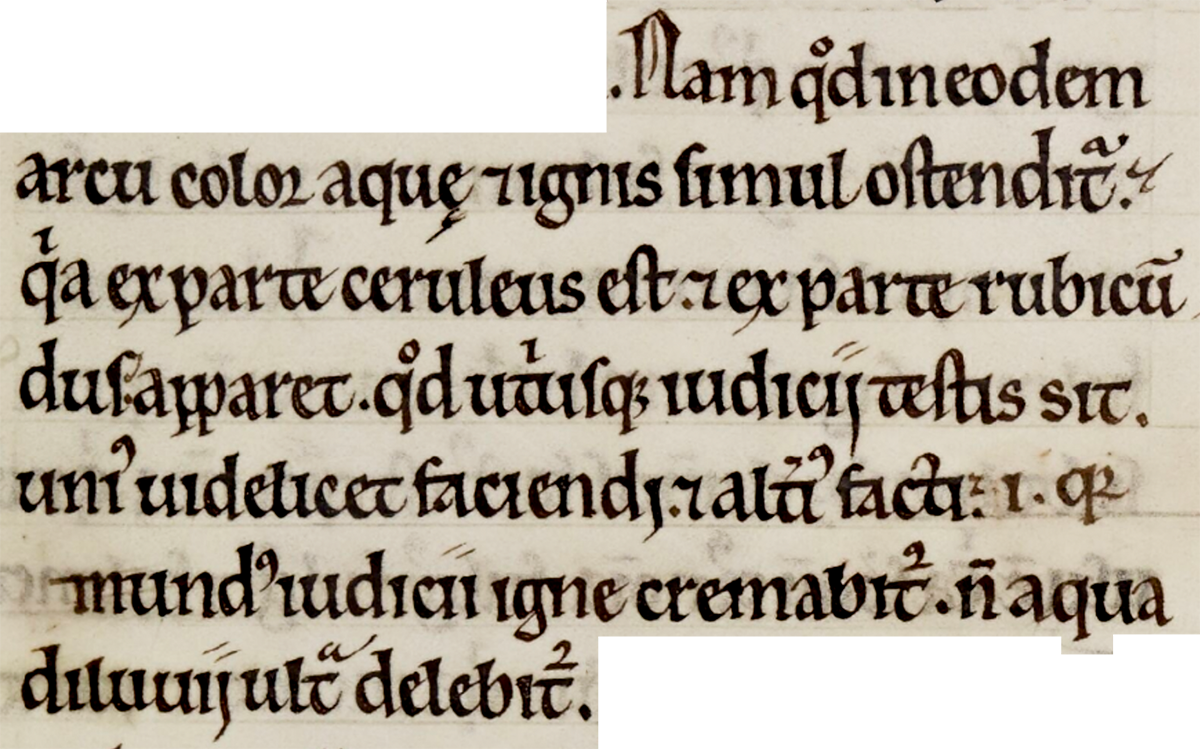 .Nam qͦd in eodem
arcu color aquę ⁊ ignis simul ostenditᷓ.
qⁱa ex parte ceruleus est. ⁊ ex parte rubicū
dus apparet. qͦd utⁱusq; iudicij testis sit.
uniꝰ uidelicet faciendi. ⁊ alt̄iꝰ facti: .i. qꝛ
mundꝰ iudicii igne cremabit᷑. n̄ aqua
diluuij ultᷓ delebit᷑.